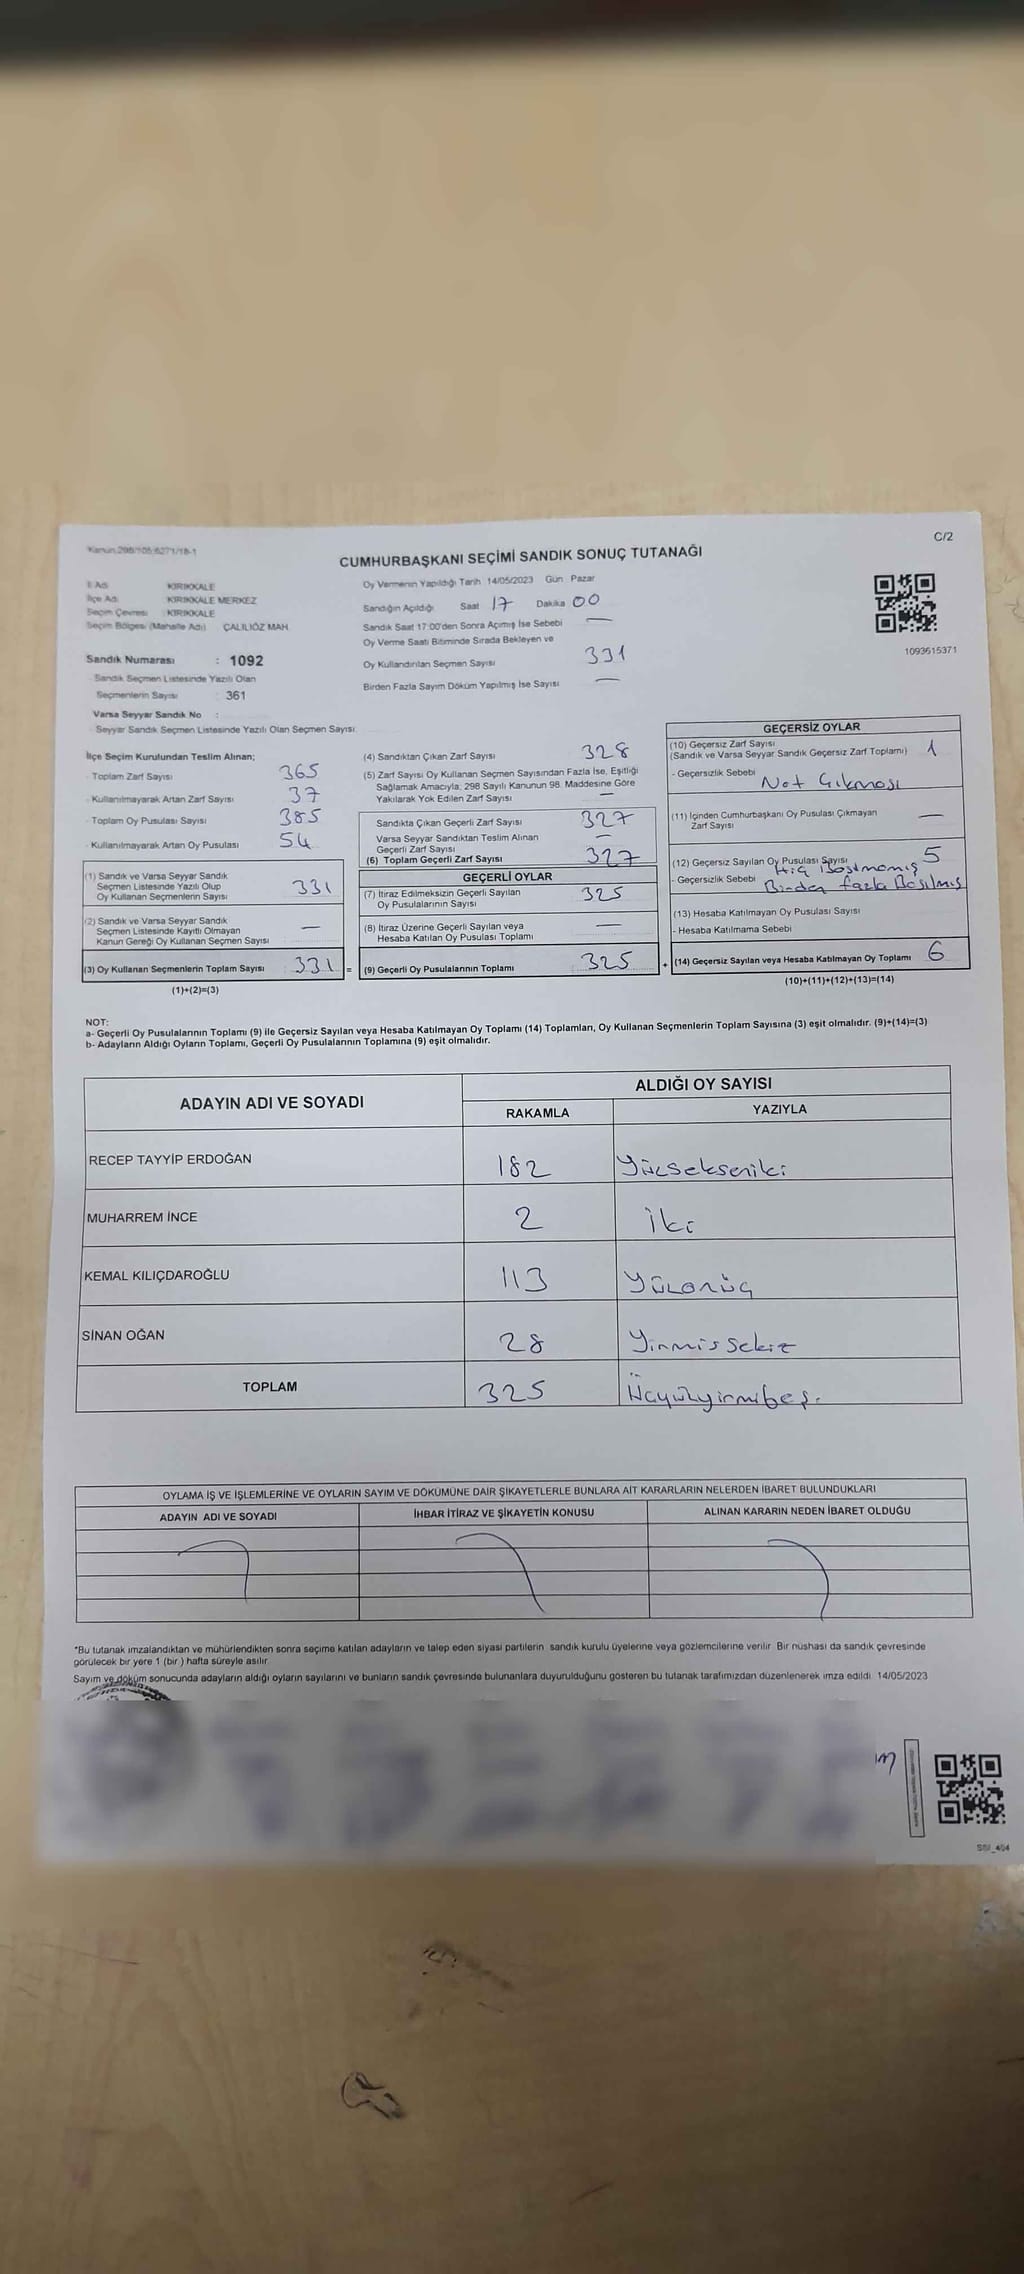 Kanun:298/105;6271/18-1
C/2
CUMHURBAŞKANI SEÇİMİ SANDIK SONUÇ TUTANAĞI
İl Adı KIRIKKALE
İlçe Adı KIRIKKALE MERKEZ
Seçim Çevresi KIRIKKALE
Seçim Bölgesi (Mahalle Adı) ÇALILIÖZ MAH.
Sandık Numarası : 1092
Sandık Seçmen Listesinde Yazılı Olan
Seçmenlerin Sayısı 361
Varsa Seyyar Sandık No :
Seyyar Sandık Seçmen Listesinde Yazılı Olan Seçmen Sayısı:
Oy Vermenin Yapıldığı Tarih 14/05/2023 Gün Pazar
Sandığın Açıldığı Saat 17 Dakika 00
Sandık Saat 17:00'den Sonra Açımış İse Sebebi —
Oy Verme Saati Bitiminde Sırada Bekleyen ve
Oy Kullandırılan Seçmen Sayısı 331
Birden Fazla Sayım Döküm Yapılmış İse Sayısı —
1093615371
İlçe Seçim Kurulundan Teslim Alınan;
- Toplam Zarf Sayısı 365
- Kullanılmayarak Artan Zarf Sayısı 37
- Toplam Oy Pusulası Sayısı 385
- Kullanılmayarak Artan Oy Pusulası 54
(1) Sandık ve Varsa Seyyar Sandık
Seçmen Listesinde Yazılı Olup
Oy Kullanan Seçmenlerin Sayısı 331
(2) Sandık ve Varsa Seyyar Sandık
Seçmen Listesinde Kayıtlı Olmayan
Kanun Gereği Oy Kullanan Seçmen Sayısı —
(3) Oy Kullanan Seçmenlerin Toplam Sayısı 331 =
(1)+(2)=(3)
(4) Sandıktan Çıkan Zarf Sayısı 328
(5) Zarf Sayısı Oy Kullanan Seçmen Sayısından Fazla İse, Eşitliği
Sağlamak Amacıyla, 298 Sayılı Kanunun 98. Maddesine Göre
Yakılarak Yok Edilen Zarf Sayısı —
Sandıkta Çıkan Geçerli Zarf Sayısı 327
Varsa Seyyar Sandıktan Teslim Alınan
Geçerli Zarf Sayısı —
(6) Toplam Geçerli Zarf Sayısı 327
GEÇERLİ OYLAR
(7) İtiraz Edilmeksizin Geçerli Sayılan
Oy Pusulalarının Sayısı 325
(8) İtiraz Üzerine Geçerli Sayılan veya
Hesaba Katılan Oy Pusulası Toplamı —
(9) Geçerli Oy Pusulalarının Toplamı 325 +
GEÇERSİZ OYLAR
(10) Geçersiz Zarf Sayısı
(Sandık ve Varsa Seyyar Sandık Geçersiz Zarf Toplamı) 1
- Geçersizlik Sebebi Not Çıkması
(11) İçinden Cumhurbaşkanı Oy Pusulası Çıkmayan
Zarf Sayısı —
(12) Geçersiz Sayılan Oy Pusulası Sayısı 5
Hiç Basılmamış
- Geçersizlik Sebebi Birden fazla Basılmış
(13) Hesaba Katılmayan Oy Pusulası Sayısı
- Hesaba Katılmama Sebebi
(14) Geçersiz Sayılan veya Hesaba Katılmayan Oy Toplamı 6
(10)+(11)+(12)+(13)=(14)
NOT:
a- Geçerli Oy Pusulalarının Toplamı (9) ile Geçersiz Sayılan veya Hesaba Katılmayan Oy Toplamı (14) Toplamları, Oy Kullanan Seçmenlerin Toplam Sayısına (3) eşit olmalıdır. (9)+(14)=(3)
b- Adayların Aldığı Oyların Toplamı, Geçerli Oy Pusulalarının Toplamına (9) eşit olmalıdır.
ADAYIN ADI VE SOYADI ALDIĞI OY SAYISI
RAKAMLA YAZIYLA
RECEP TAYYİP ERDOĞAN 182 Yüzsekseniki
MUHARREM İNCE 2 iki
KEMAL KILIÇDAROĞLU 113 Yüzonüç
SİNAN OĞAN 28 YirmisSekiz
TOPLAM 325 Üçyüzyirmibeş.
OYLAMA İŞ VE İŞLEMLERİNE VE OYLARIN SAYIM VE DÖKÜMÜNE DAİR ŞİKAYETLERLE BUNLARA AİT KARARLARIN NELERDEN İBARET BULUNDUKLARI
ADAYIN ADI VE SOYADI İHBAR İTİRAZ VE ŞİKAYETİN KONUSU ALINAN KARARIN NEDEN İBARET OLDUĞU
*Bu tutanak imzalandıktan ve mühürlendikten sonra seçime katılan adayların ve talep eden siyasi partilerin sandık kurulu üyelerine veya gözlemcilerine verilir. Bir nüshası da sandık çevresinde
görülecek bir yere 1 (bir) hafta süreyle asılır.
Sayım ve döküm sonucunda adayların aldığı oyların sayılarını ve bunların sandık çevresinde bulunanlara duyurulduğunu gösteren bu tutanak tarafımızdan düzenlenerek imza edildi. 14/05/2023
SSI_404